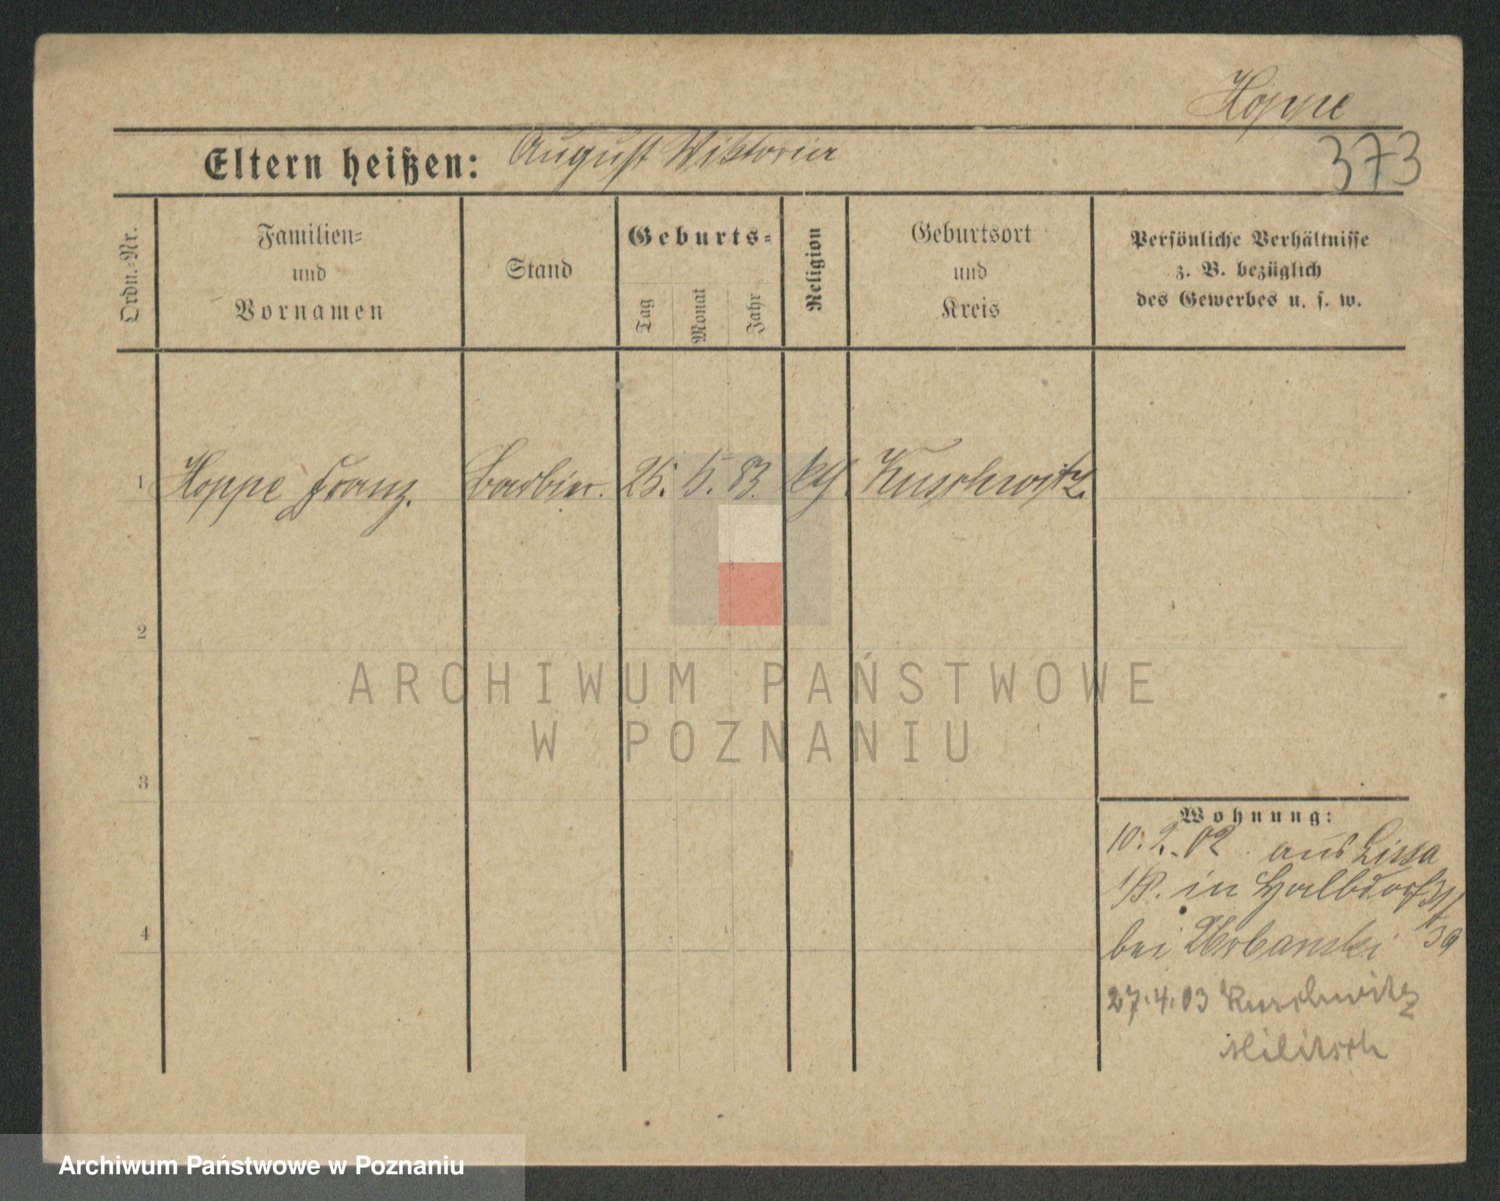 Hoppe
Eltern heißen: August Wiktoria
373
Ordn.-Nr.
Familien-
und
Vornamen
Stand
Geburts-
Tag
Monat
Jahr
Religion
Geburtsort
und
Kreis
Persönliche Verhältnisse
z. B. bezüglich
des Gewerbes u. s. w.
1 Hoppe Franz. Barbier. 25. 5. 83. kth. Kuschwitz.
2
ARCHIWUM PAŃSTWOWE
W POZNANIU
3
Wohnung:
10. 2. 02. aus Lissa
i/P. in Halbdorfstr
bei Urbanski 39
4
27.4.03 Kuschwitz
Militsch
Archiwum Państwowe w Poznaniu